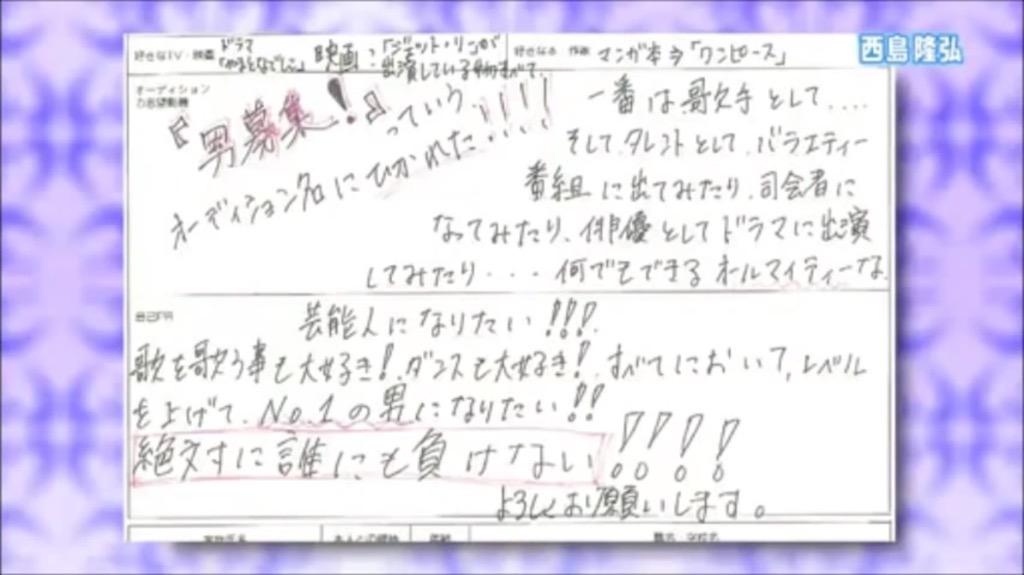 西島隆弘
好きなTV・映画 ドラマ「やまとなでしこ」 映画:「ジェット・リンが出演している物すべて。
好きな本 マンガ本 「ワンピース」
オーディション
志望動機
『男募集!』っていう、
オーディション名にひかれた!!!!
一番は歌手として....
そして、タレントとして、バラエティー
番組に出てみたり、司会者に
なってみたり、俳優としてドラマに出演
してみたり・・・何でもできるオールマイティーな
自己PR
芸能人になりたい!!!
歌を歌う事も大好き!ダンスも大好き!すべてにおいて、レベル
を上げて、No.1の男になりたい!!
絶対に誰にも負けない!!!!
よろしくお願いします。